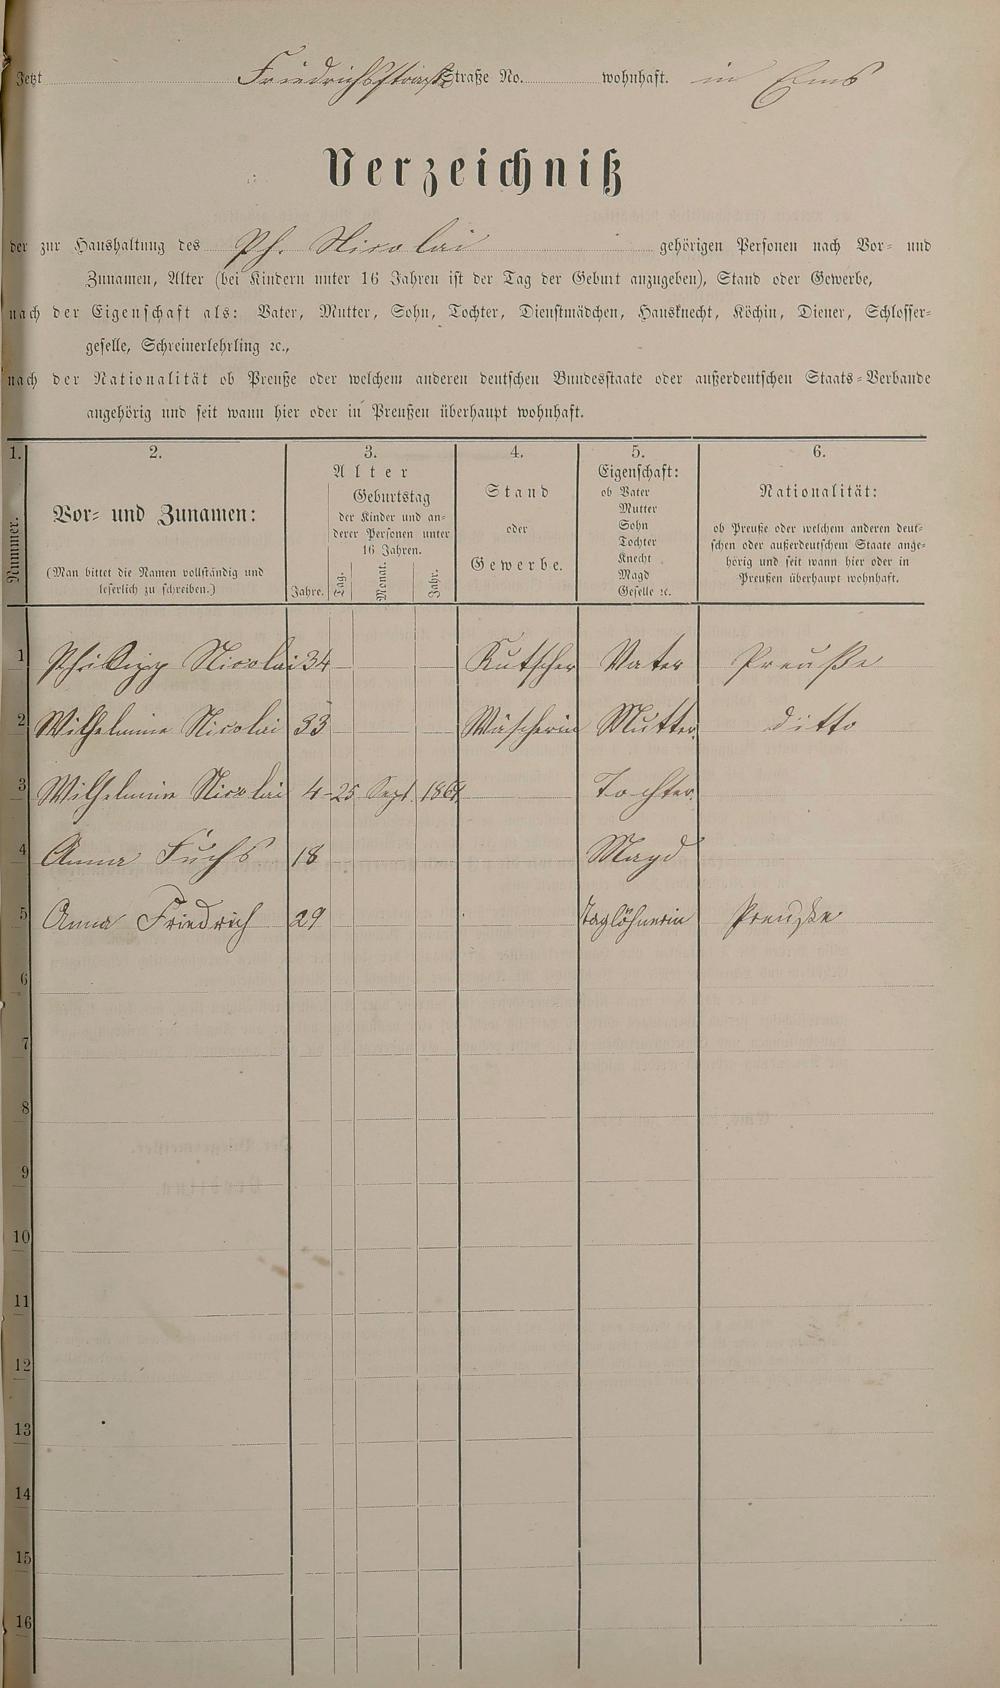 Jetzt Friedrichsstraße Straße No. wohnhaft. in Ems
Verzeichniß
der zur Haushaltung des Ph. Nicolai gehörigen Personen nach Vor- und
Zunamen, Alter (bei Kindern unter 16 Jahren ist der Tag der Geburt anzugeben), Stand oder Gewerbe,
nach der Eigenschaft als: Vater, Mutter, Sohn, Tochter, Dienstmädchen, Hausknecht, Köchin, Diener, Schlosser-
geselle, Schreinerlehrling ꝛc.,
nach der Nationalität ob Preuße oder welchem anderen deutschen Bundesstaate oder außerdeutschen Staats-Verbande
angehörig und seit wann hier oder in Preußen überhaupt wohnhaft.
1. 2. 3. 4. 5. 6.
Nummer.
Vor- und Zunamen:
(Man bittet die Namen vollständig und
leserlich zu schreiben.)
Alter
Jahre.
Geburtstag
der Kinder und an-
derer Personen unter
16 Jahren.
Tag. Monat. Jahr.
Stand
oder
Gewerbe.
Eigenschaft:
ob Vater
Mutter
Sohn
Tochter
Knecht
Magd
Geselle ꝛc.
Nationalität:
ob Preuße oder welchem anderen deut-
schen oder außerdeutschem Staate ange-
hörig und seit wann hier oder in
Preußen überhaupt wohnhaft.
1 Philipp Nicolai 34 Kutscher Vater Preuße
2 Wilhelmine Nicolai 33 Wäscherin Mutter ditto
3 Wilhelmine Nicolai 4 25 Sept. Tochter
4 Anna Fuchs 18 Magd
5 Anna Friedrich 29 Taglöhnerin Preuße
6
7
8
9
10
11
12
13
14
15
16